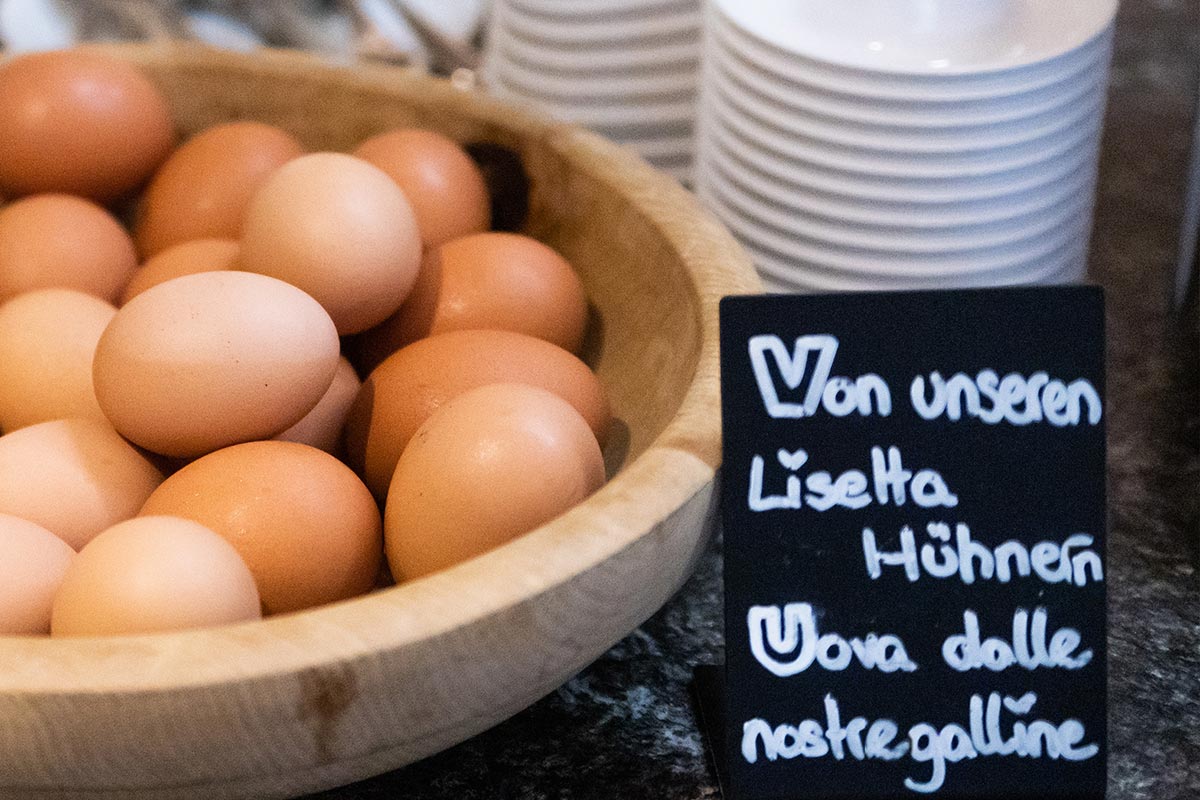 Von unseren
Lisetta
Hühnern
Uova dalle
nostre galline